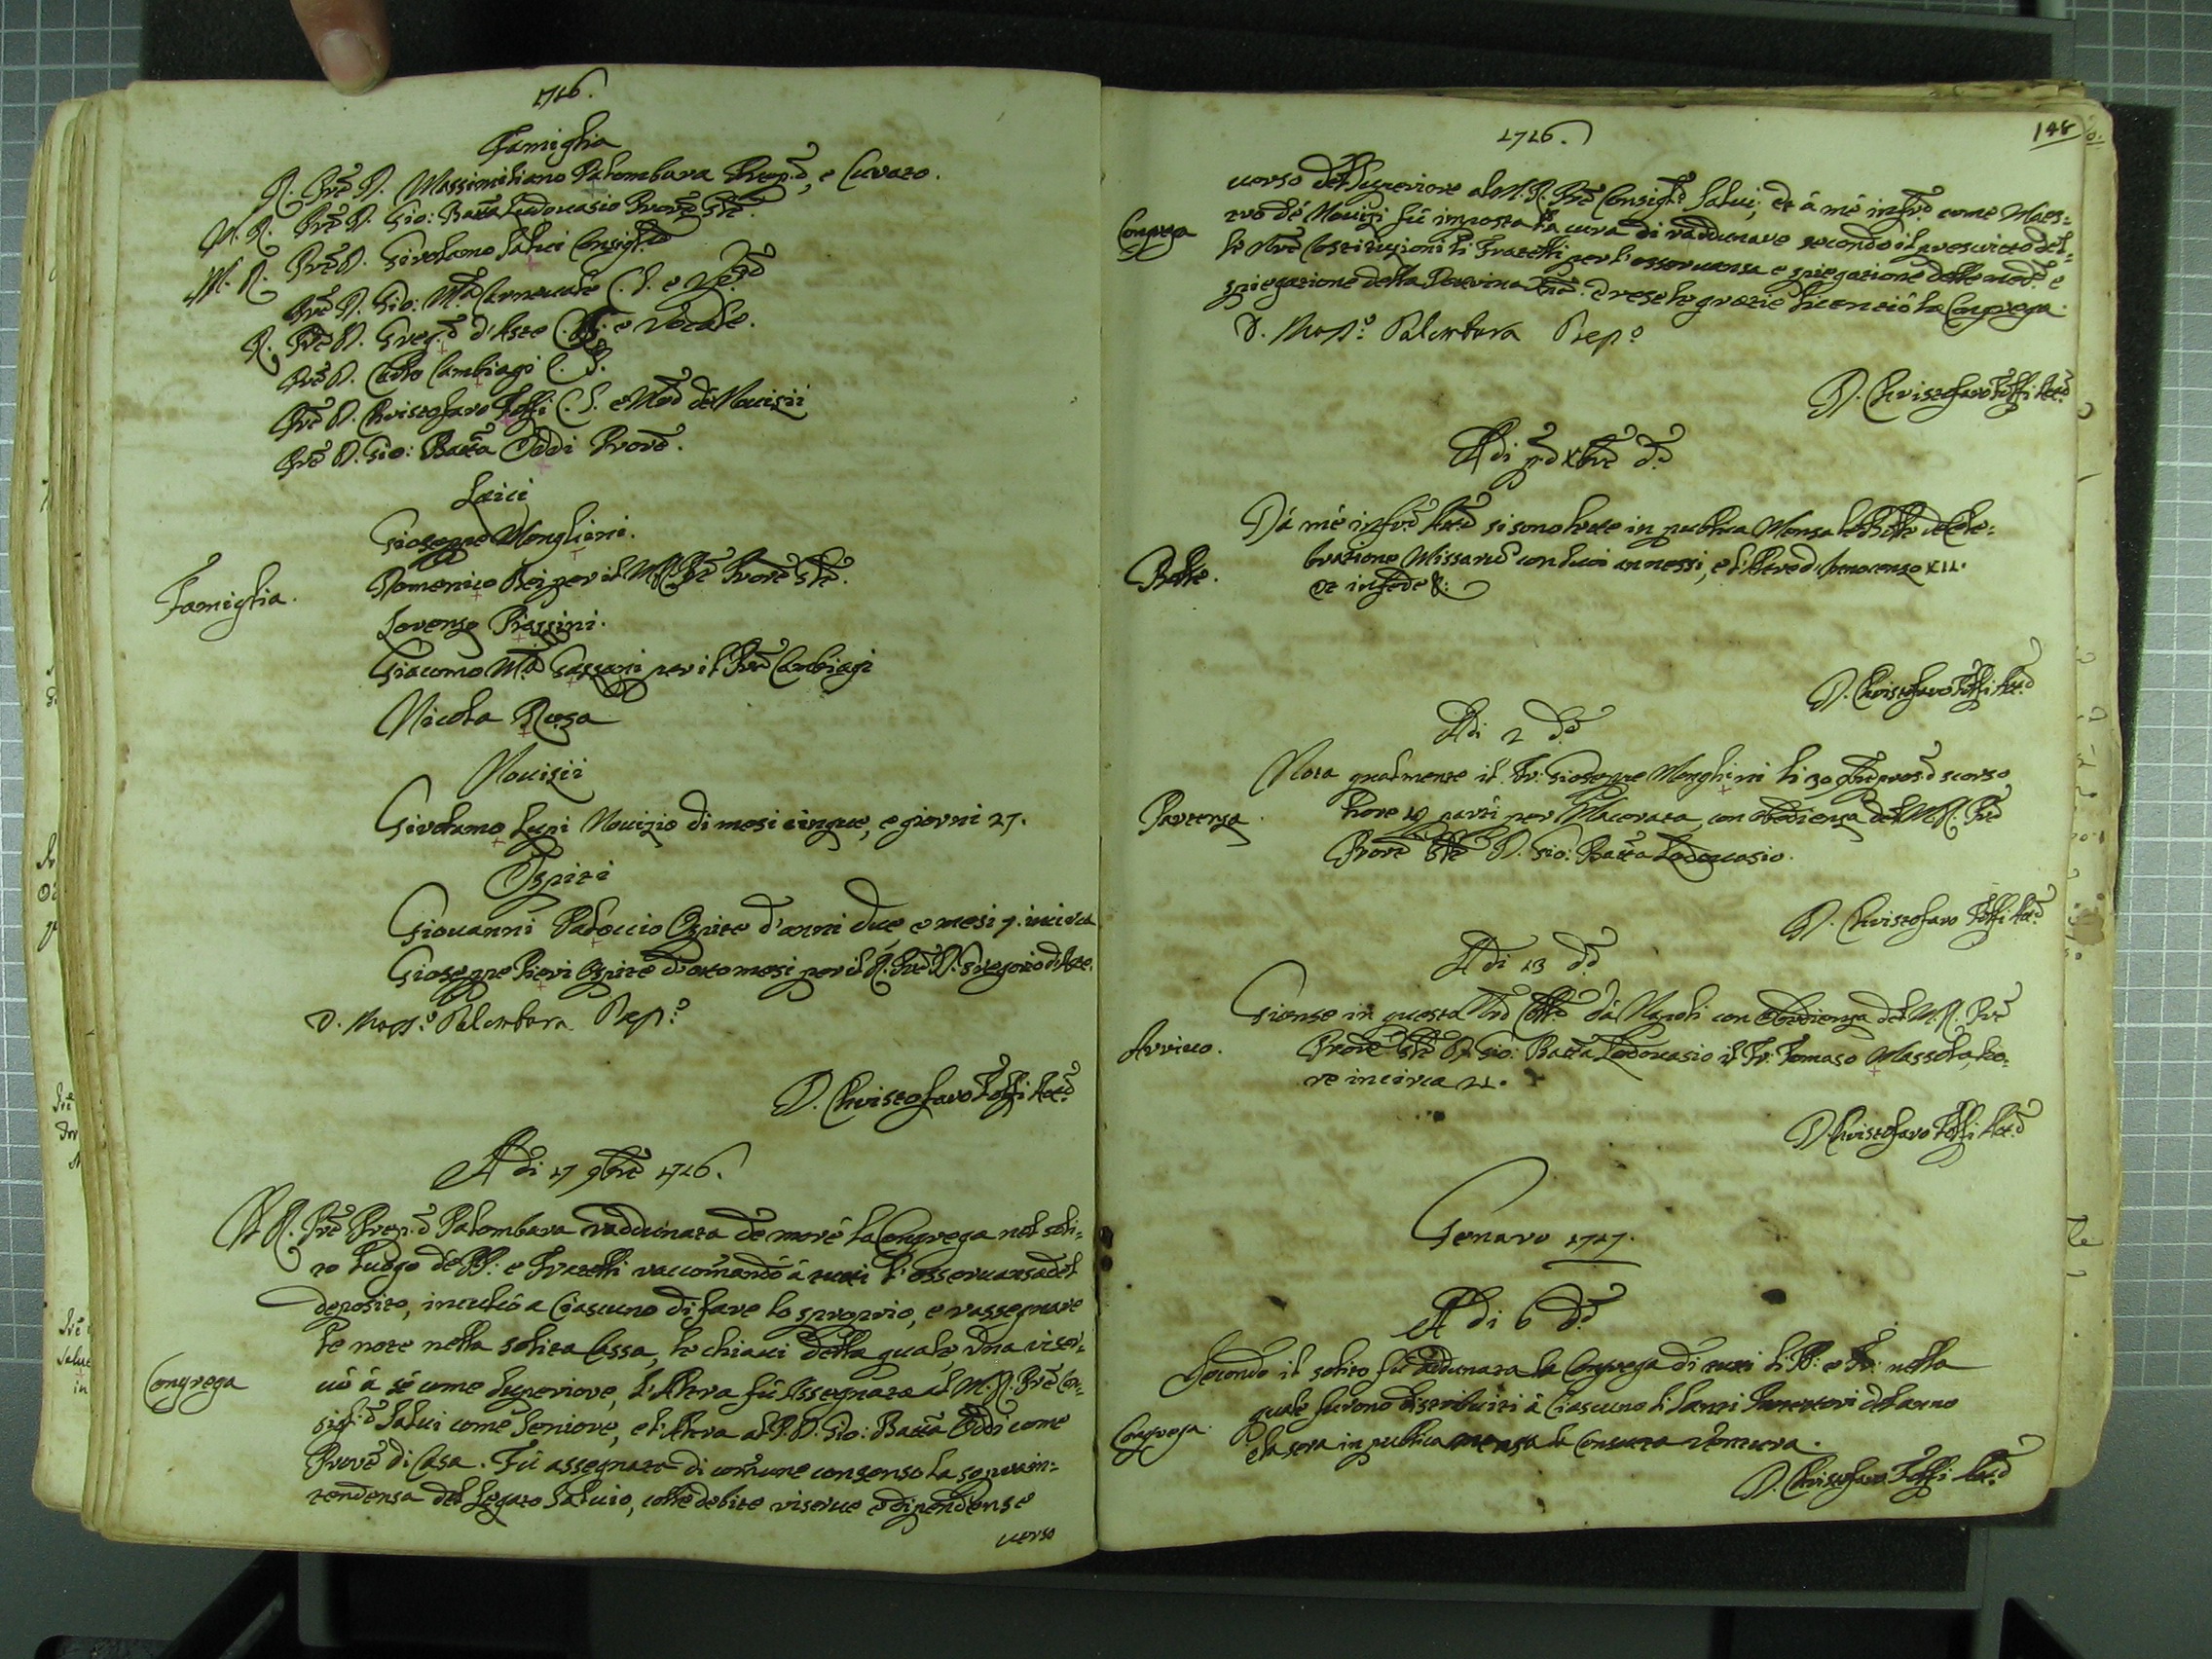 1726.
Famiglia
R. Prē D. Massimiliano Palombara Prep.o, e Curato.
M. R. Prē D. Gio: Batta Lodouasio Prove Gle.
M. R. Prē D. Girolamo Salui Consigl.o
Prē D. Gio: M.a Carneuale C. S. e
R. Prē D. Greg.o d'Aste e Vocale.
Prē D. Carlo Cambiagi C. S.
Prē D. Christofaro Toffi C. S. e Mro de Nouizii
Prē D. Gio: Batta Oddi Prove.
Laici
Gioseppe Menghini.
Famiglia.
Domenico Bei per il M. R. Prē Prove Gle.
Lorenzo Piassini.
Giacomo M.a Gassani per il Prē Cambiagi
Nicola Rosa
Nouizii
Girolamo Lupi Nouizio di mesi cinque, e giorni 27.
Ospiti
Giouanni Padoccio Ospite d'anni due, e mesi 7. incirca
Gioseppe Pieri Ospite d'otto mesi per il R. Prē D. Gregorio d'Aste.
D. Mass.o Palombara Rep.o
D. Christofaro Toffi Att.o
A di 17 9bre 1726.
Il R. Prē Prep.o Palombara raddunata de more la Congrega nel soli=
to luogo de PP: e Fratelli raccomandò à tutti l'osseruanza del
deposito, inculcò a Ciascuno di fare lo sproprio, e rassegnare
le note nella solita Cassa, le chiaui della quale Vna riser=
Congrega
uò à sé come Superiore, l'Altra fù Assegnata al M. R. Prē Con=
sigl.o Salui come Seniore, e l'Altra al P. D. Gio: Batta Oddi come
Prove di Casa. Fù assegnata di comune consenso la soprain=
tendenza del Legato Saluio, colle debite riserue e dipendenze
uerso
1726.
148
uerso del Superiore al M. R. Prē Consigl.o Salui, et à mé infr.o come Maes=
Congrega
tro de Nouizi fù imposta la cura di raddunare secondo il prescritto del=
le Nre Costituzioni li Fratelli per l'osseruanza e spiegazione delle med.e e
spiegazione della Dottrina Xna. E rese le grazie licenziò la Congrega.
D. Mass.o Palombara Rep.o
D. Christofaro Toffi Att.o
A di p.o Xbre d.o
Dà mé infr.o Att.o si sono lette in publica Mensa le Bolle de Cele=
Bolle.
bratione Missarū con suoi annessi, e l'Altre d'Innocenzo XII.
et in fede &.
D. Christofaro Toffi Att.o
A di 2 d.o
Nota qualmente il Fr: Gioseppe Menghini li 30 9bre pros.o scorso
Partenza.
hore 19 partì per Macerata, con obedienza del M. R. Prē
Prove Gle D. Gio: Batta Lodouasio.
D. Christofaro Toffi Att.o
A di 13 d.o
Gionse in questo Nro Coll.o dà Napoli con Obedienza del M. R. Prē
Arriuo.
Prove Gle D. Gio: Batta Lodouasio il Fr: Tomaso Massola, ho=
re incirca 21.
D. Christofaro Toffi Att.o
Genaro 1727.
A di 6 d.o
Secondo il solito fù Addunata la Congrega di tutti li PP: e Fr: nella
quale furono distribuiti à Ciascuno li Santi Protettori dell'anno
Congrega.
e la sera in publica mensa la Consueta Ventura.
D. Christofaro Toffi Att.o